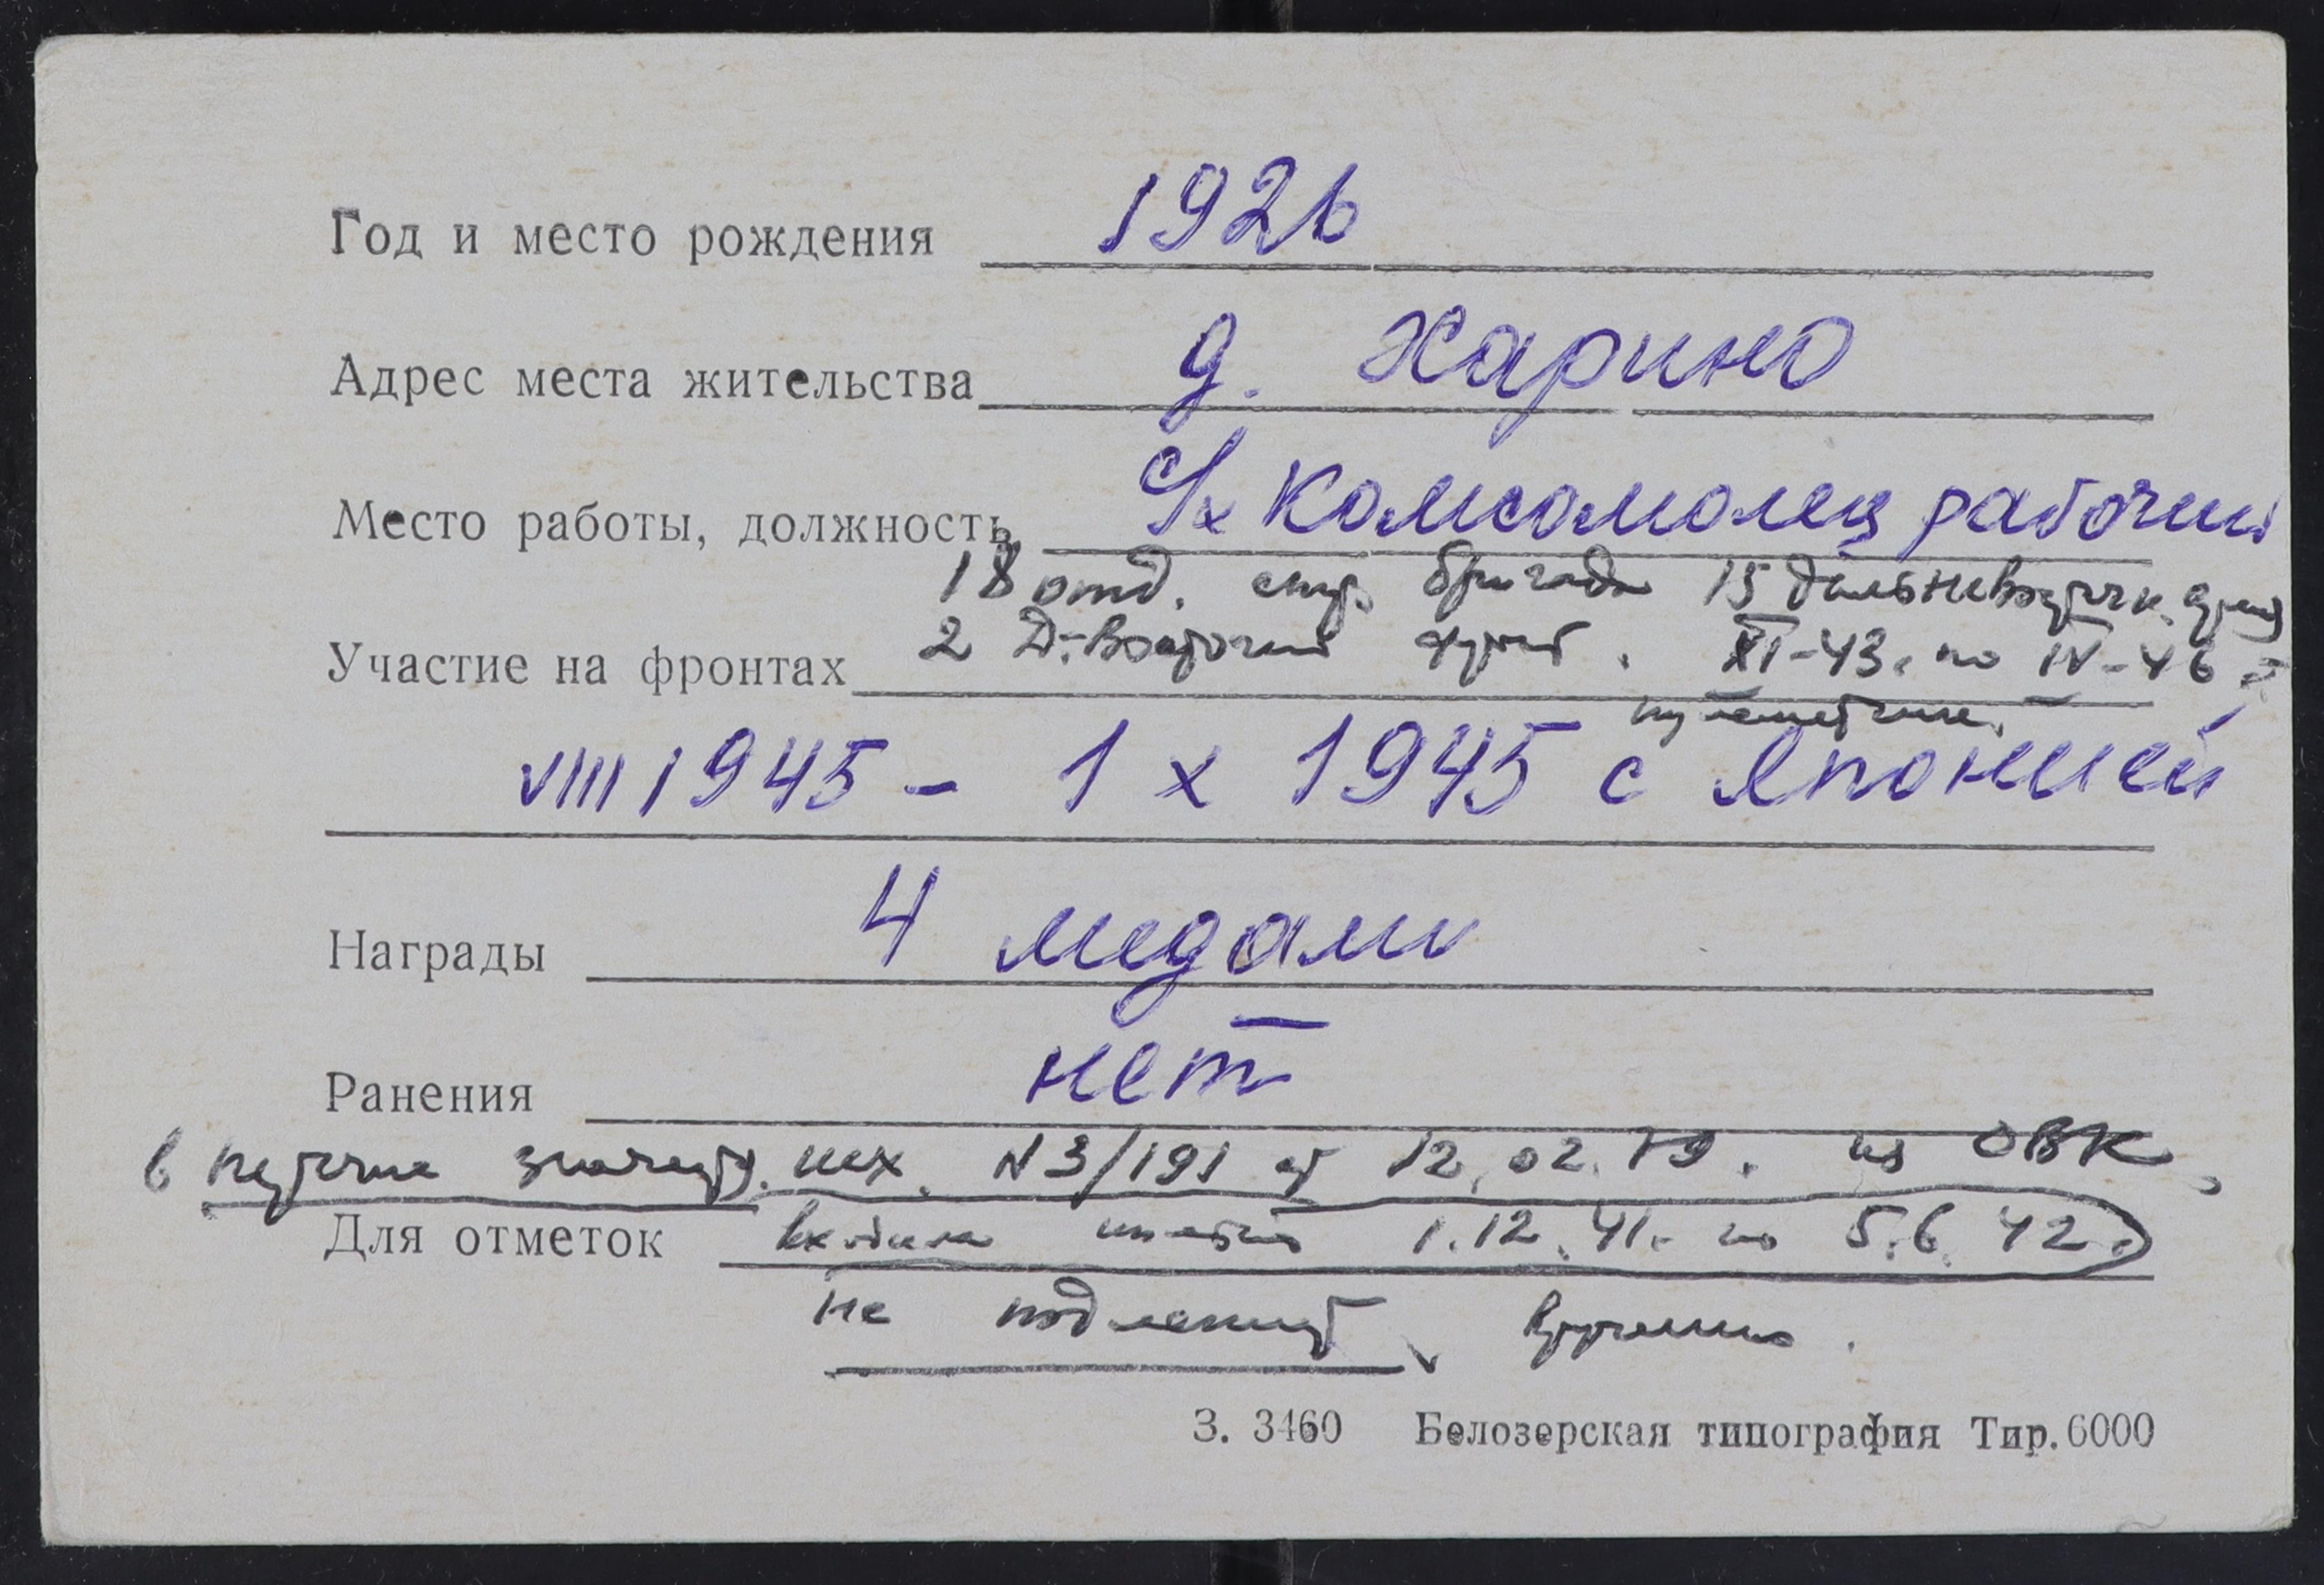 Год и место рождения 1926
Адрес места жительства д. Харино
Место работы, должность с/х Комсомолец рабочий
18 отд. стр. бригада 15 дальневосточн.
Участие на фронтах 2 Д-Восточный фронт. XI-43. по IV-46 г.
пулеметчик.
VIII 1945 - 1 X 1945 с Японией
Награды 4 медали
Ранения нет
в исх. N 3/191 от 12.02.79. из ОВК,
Для отметок 1.12.41. по 5.6.42.
не подлежит вручению.
З. 3460 Белозерская типография Тир. 6000